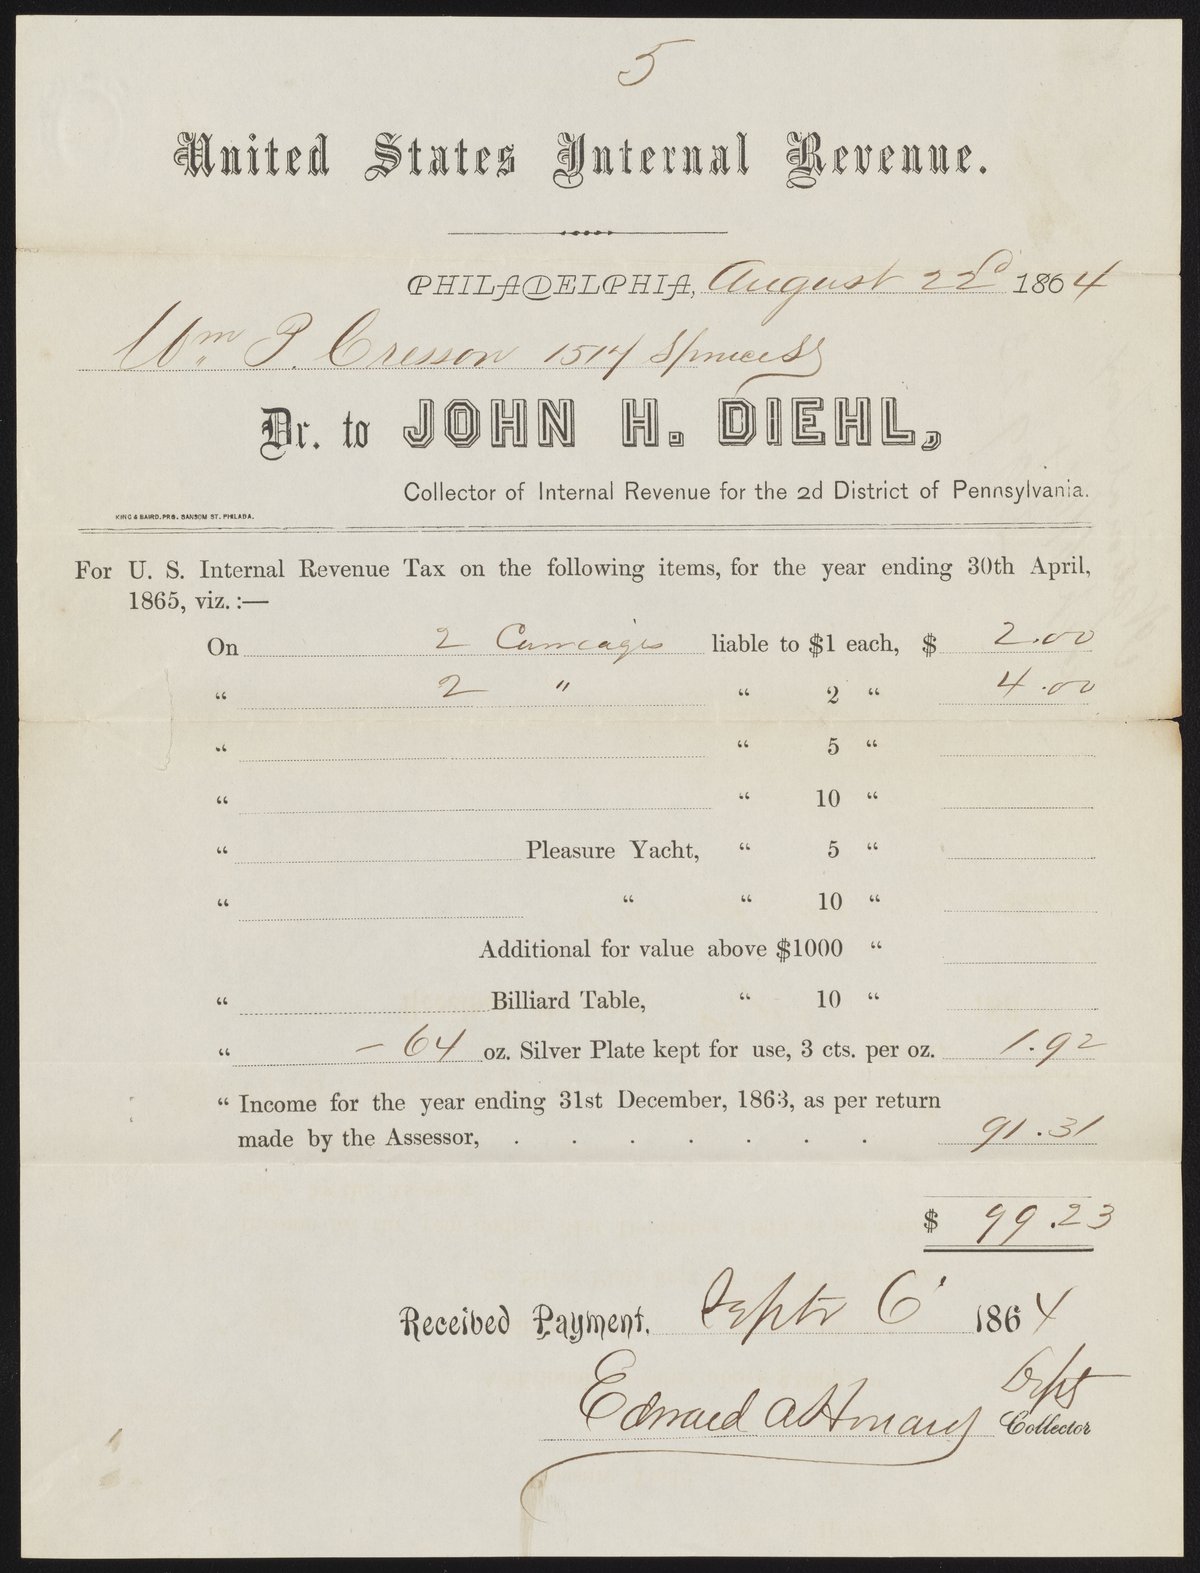 5
United States Internal Revenue.
PHILADELPHIA, August 22d 1864
Wm P. Cresson 1514 Spruce St
Dr. to JOHN H. DIEHL,
Collector of Internal Revenue for the 2d District of Pennsylvania.
KING & BAIRD, PRS. SANSOM ST. PHILADA.
For U. S. Internal Revenue Tax on the following items, for the year ending 30th April,
1865, viz. :—
On 2 Carriages liable to $1 each, $ 2.00
“ 2 " “ 2 “ 4.00
“ “ 5 “
“ “ 10 “
“ Pleasure Yacht, “ 5 “
“ “ “ 10 “
Additional for value above $1000 “
“ Billiard Table, “ 10 “
“ – 64 oz. Silver Plate kept for use, 3 cts. per oz. 1.92
“ Income for the year ending 31st December, 1863, as per return
made by the Assessor, . . . . . . . 91.31
$ 99.23
Received Payment. Septr 6' 1864
Edward A Howard Collector